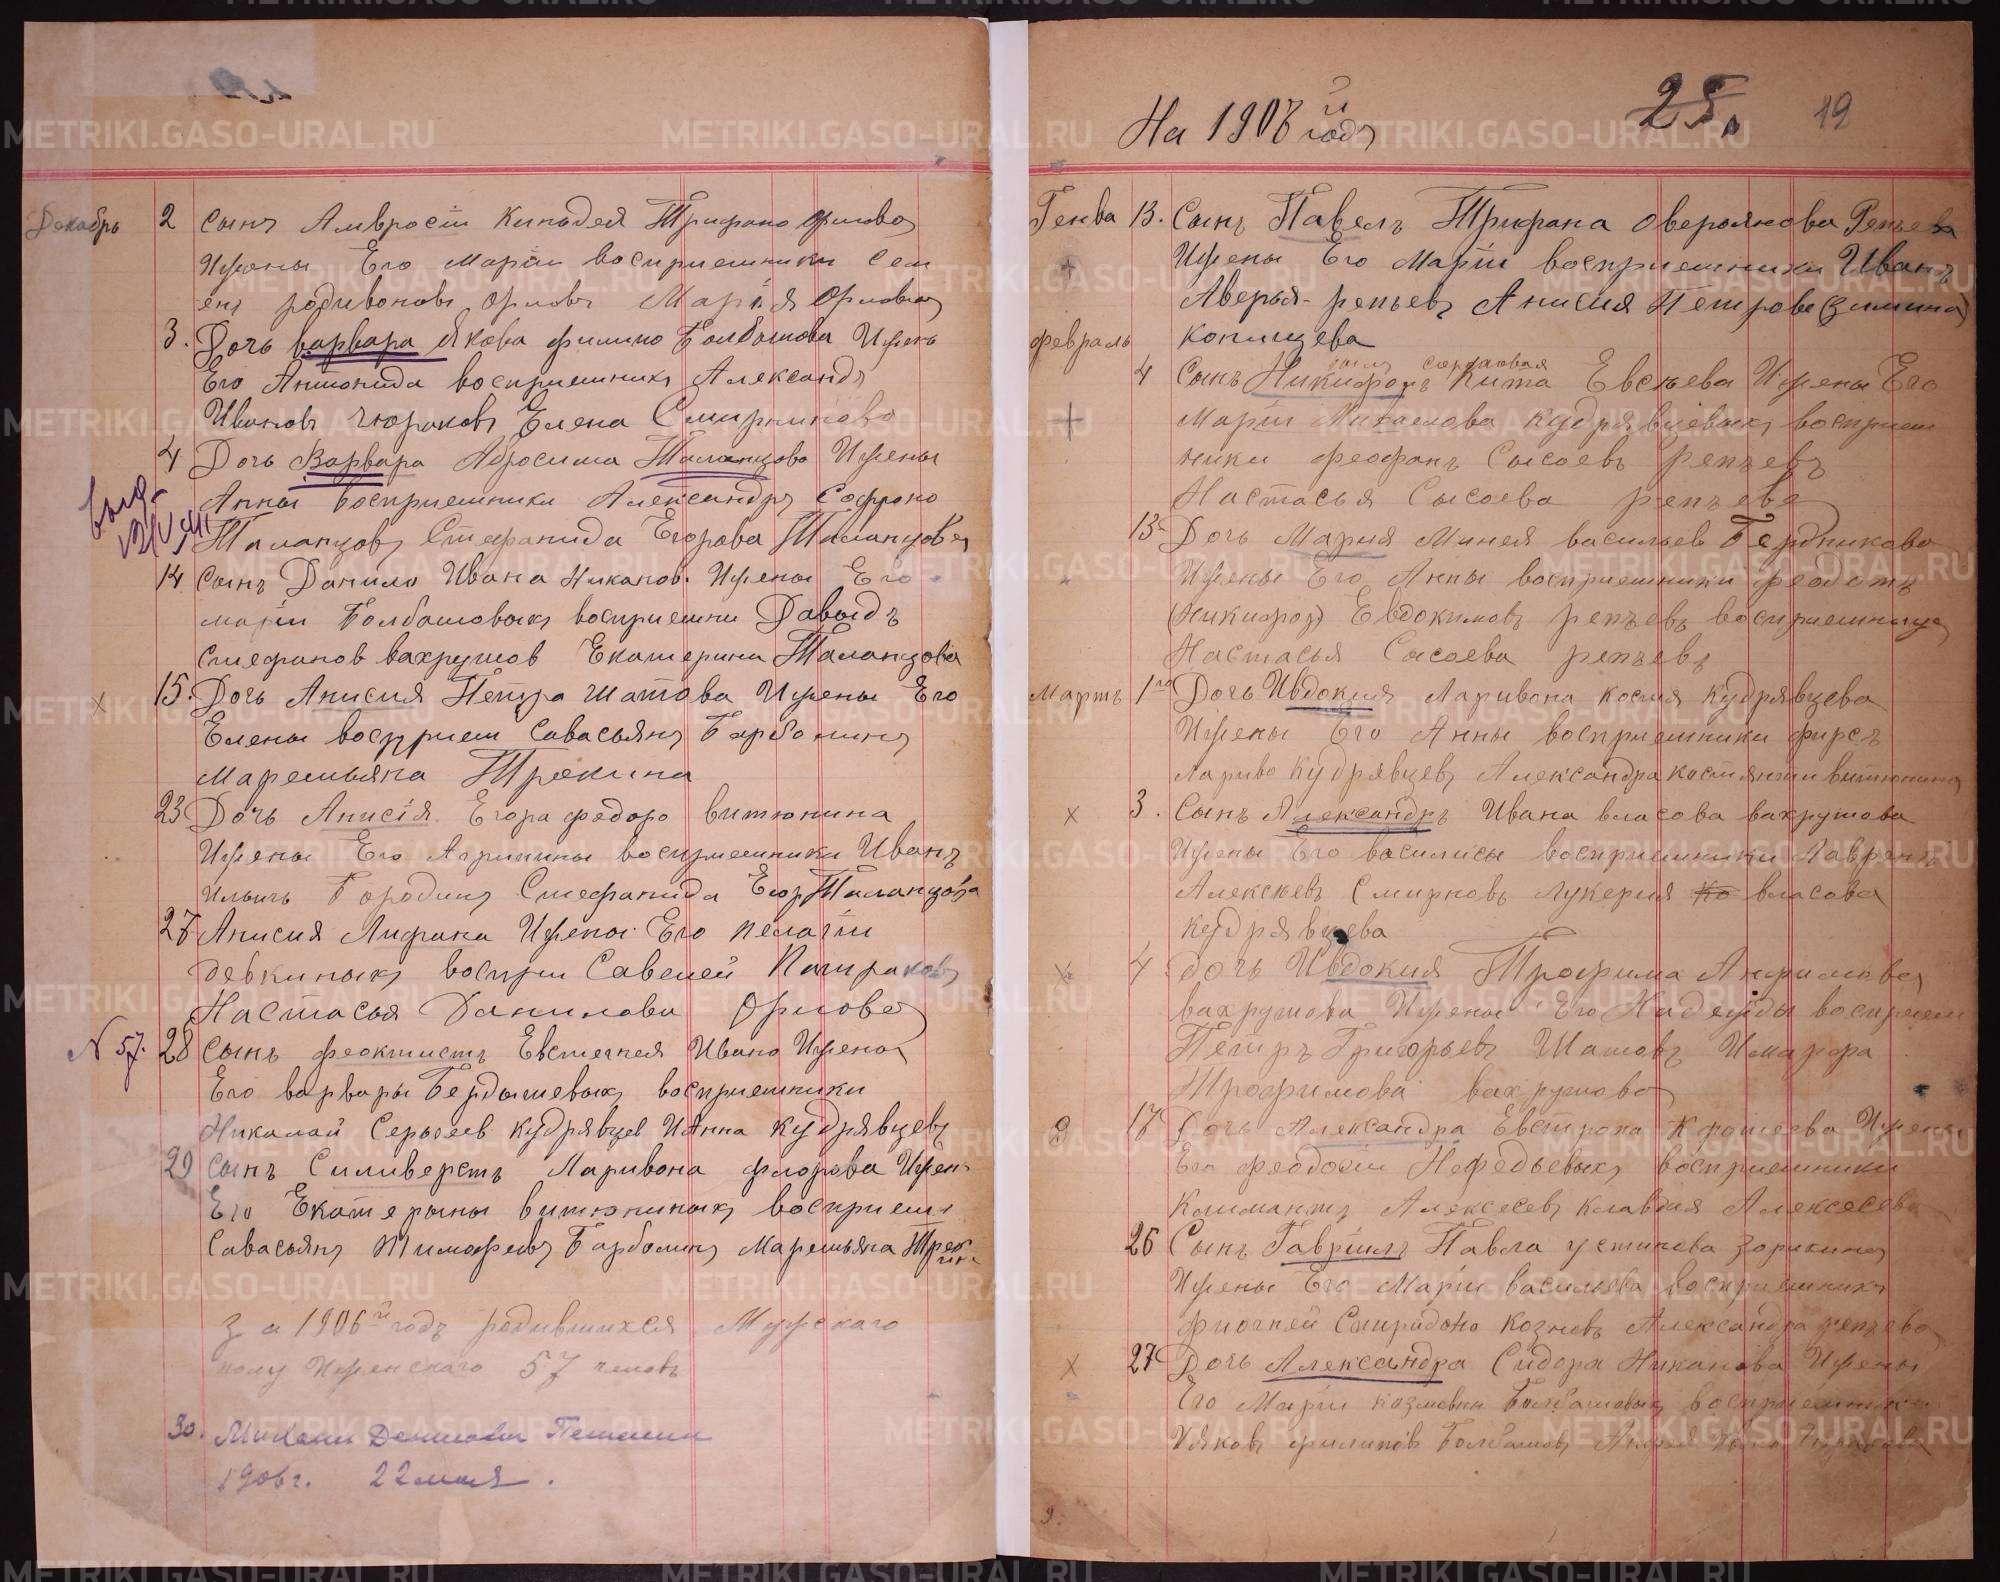 Декабрь 2 Сынъ Амвросій Кипьдея Трифоно Орлова
Ижены Его Маріи восприемники Сем
енъ родивоновъ орловъ Марія Орлова
3. Дочь варвара Якова филипо Болбашова Ижень
Его Антонида восприемникъ Александъ
Ивановъ Елена Смирникова
4 Дочь Варвара Абросима Таланцова Ижены
Анны восприемники Александръ Софроно
Таланцовъ Стефанида Егорова Таланцова
14 Сынъ Данило Ивана Никанов. Ижены Его
маріи Болбашовыхъ восприемни Давыдъ
Стефанов вахрушов Екатерина Таланцова
15. Дочь Анисия Петра Шатова Ижены Его
Елены восприем Савасьянъ Барболинъ
Маремьяна Трекина
23 Дочь Анисія Егора федоро витюнина
Ижены Его Агрипины восприемники Иванъ
Ильичь Бородинъ Стефанида Егор Таланцова
27 Анисия Лифана Ижены Его пелагіи
девкиныхъ восприи Савелей
Настасья Данилова Орлова
N 57. 28 Сынъ феоктистъ Евстегнея Ивано Ижена
Его варвары Бердышевыхъ восприемники
Николай Сергеев Кудрявцев ИАнна Кудрявцевъ
29 Сынъ Силиверстъ Ларивона флорова Ижен
Его Екатерыны витюниныхъ восприемн
Савасьянъ Тимофеевъ Барболинъ Маремьяна Трек
ина
За 1906-й годъ родившихся Мужскаго
полу Иженскаго 57 человъ
30.
1906г. 22 мая.
25. 19
На 1907й годъ
Генва 13. Сынъ Павелъ Трифона Оверьянова Репьева
Ижены Его Маріи восприемники Иванъ
Аверья- репьевъ Анисия Петрова (зимина)
февраль Копищева
4 Сынъ Никифоръ Тита Евсьева Ижены Его
Маріи Кудрявцевыхъ восприем
ники феофанъ Сысоевъ репьевъ
Настасья Сысоева репьева
13 Дочь Мария Минея васильев Бердникова
Ижены Его Анны восприемники федотъ
(Никифоръ) Евдокимовъ репьевъ восприемница
Настасья Сысоева репьевъ
Мартъ 1го Дочь Ивдокия Ларивона космя Кудрявцева
Ижены Его Анны восприемники фирсъ
Лариво Кудрявцевъ Александра костянтин витюнина
3. Сынъ Александръ Ивана власова вахрушова
Ижены Его василисы восприемники Лаврентъ
Алексьевъ Смирновъ Лукерия власова
Кудрявцева
4 дочь Ивдокия Трофима Анфилова
вахрушова Ижены Его Надежды восприем
Петръ Григорьевъ Шатовъ Имарфа
Трофимова вахрушова
17 Дочь Александра Евстропа Ижены
Его феодосіи Нефедьевыхъ восприемники
Климантъ Алексеевъ Клавдия Алексеева
26 Сынъ Гавріилъ Павла устинова Зорихина
Ижены Его Маріи васильева восприемникъ
Спиридоно Александра репьева
27 Дочь Александра Сидора Никанова Ижены
Его Маріи Козмовны Болбашовыхъ восприемники
Ияковъ филиповъ Болбашовъ